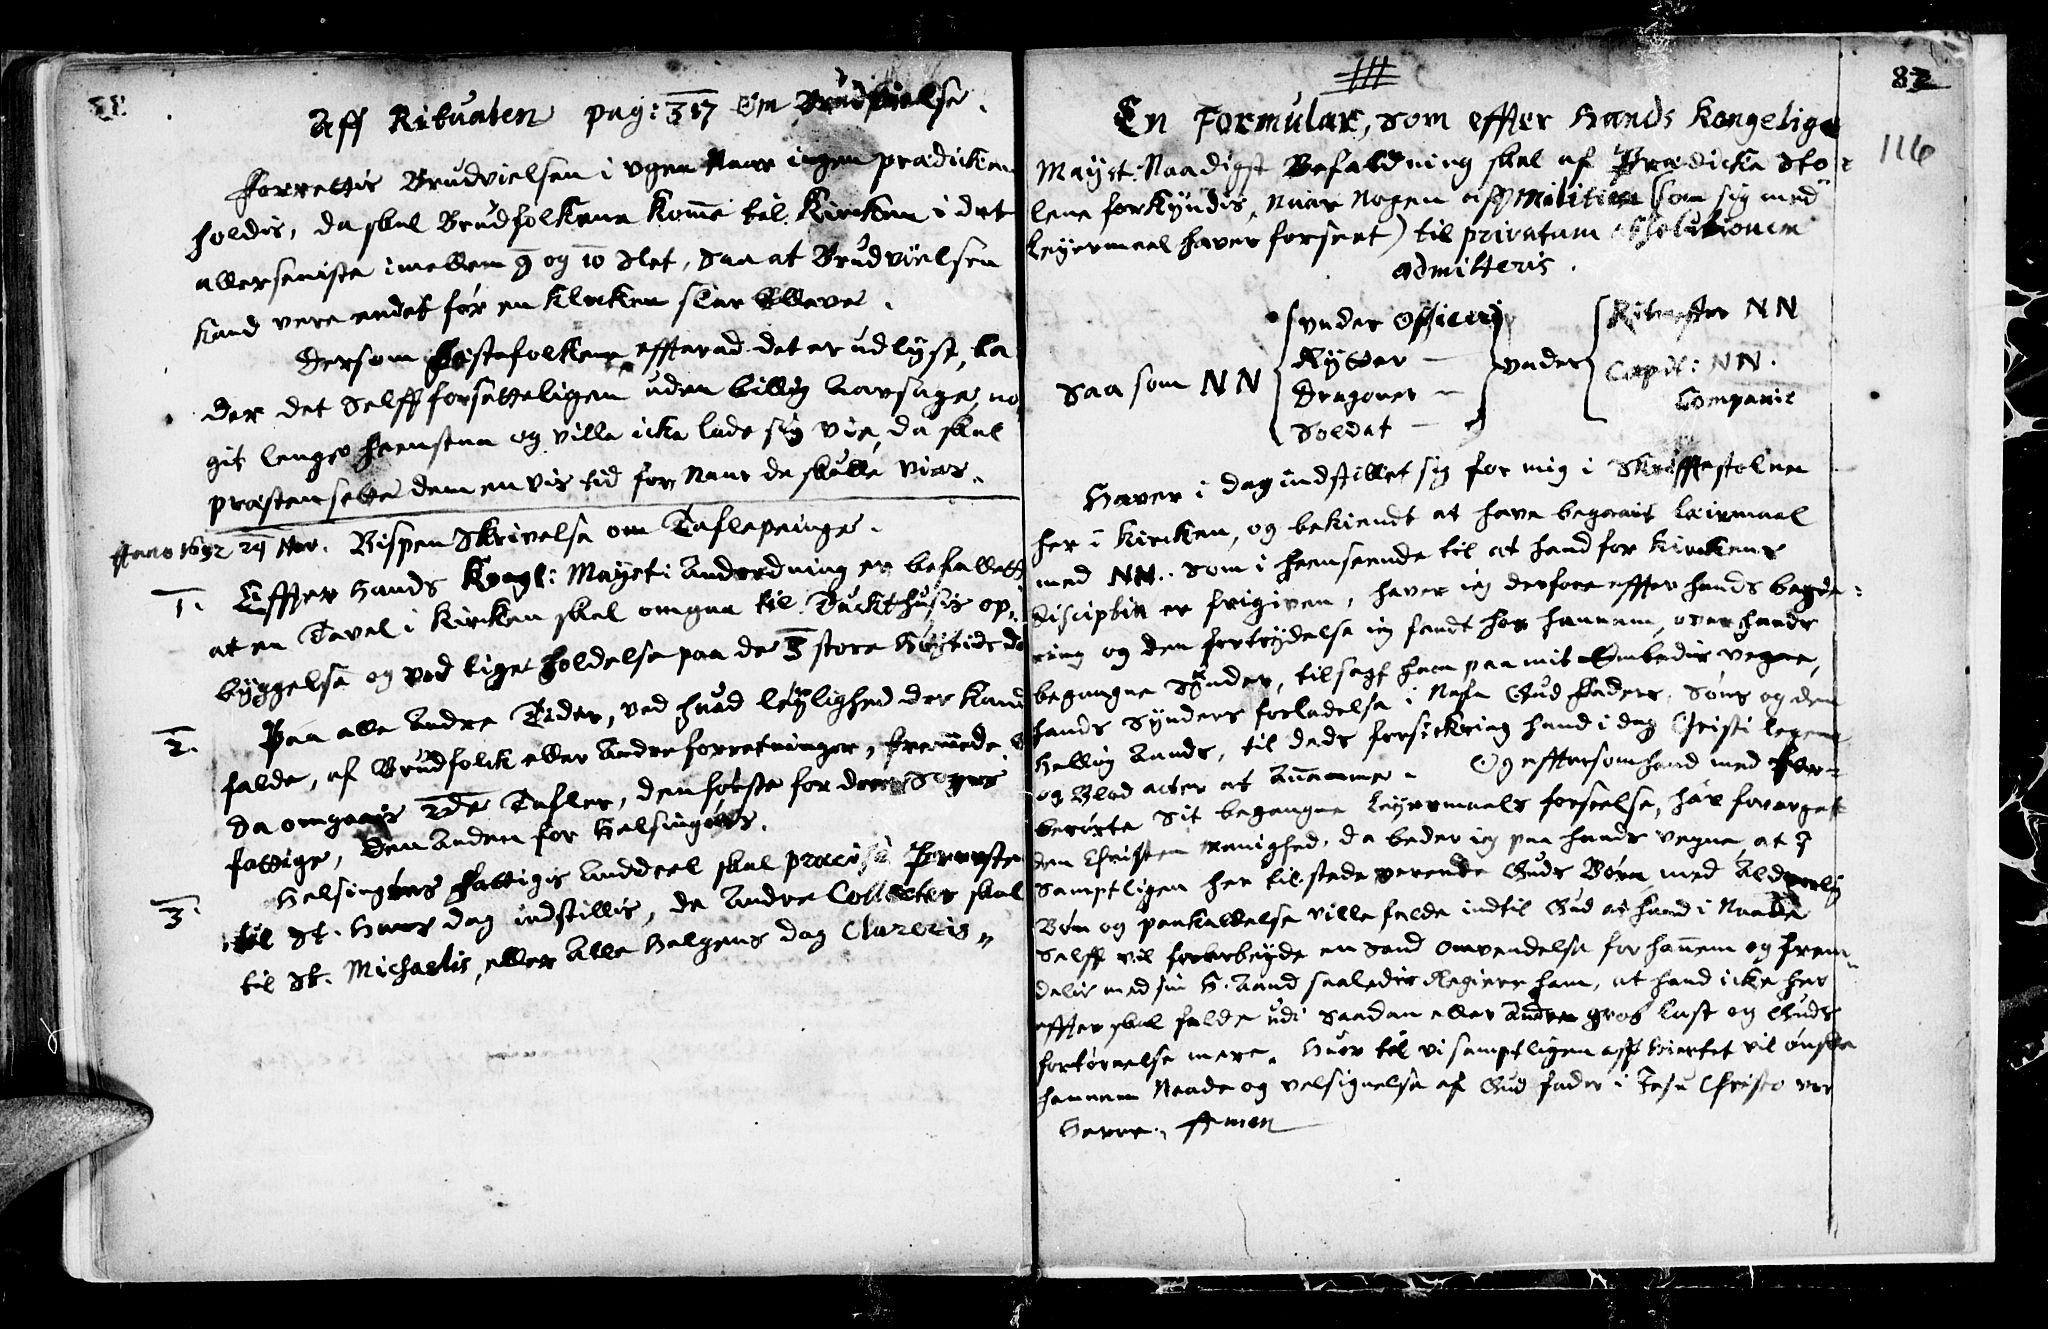 Aff Ritualen pag: 317 Om Brudvielse.
Forrettis Brudvielsen i ugen Naar ingen prædicken
holdis, da skal Brudfolkene komme til Kircken i det
allerseniste imellem 9 og 10 Slet, Saa at Brudvielsen
kand vere endet før en Klocken slar Elleve.
Dersom Festefolkene, efterad det er udlyst, la
der det Selff forsetteligen uden billig Aarsage, no
git lenger fremstaa og ville icke lade sig vie, da skal
præsten sette dem en vis tid for Naar de skulle vies.
Anno 1692 29 Nov. Bispens Skrivelse om Taflepenge.
1. Effter Hands Kongl: Mayst: Anordning er befallett
at en Tavel i Kircken skal omgaa til Tuckthusis op-
byggelse og ved lige holdelse paa de 3 store Høytids da
2. Paa alle Andre Tider, ved huad leylighed der kand
falde, af Brudfolck eller Andre forretninger, fremmede
da omgaais 2de Tafler, den første for deres Sogns
fattige, den Anden for Helsingørs.
3. Helsingørs Fattigis Anddeel skal præcise Provsten
til St. Hans dag indstillis, de Andre Collecter skal
til St. Michaelis, eller Alle Helgens dag Clareris
82
116
En Formular, som effter Hands Kongelige
Mayst: Naadigst Befaldning skal af Prædicke Sto-
lene forkyndis, Naar Nogen aff Militien (som sig med
Leyermaal haver forseet) til privatam absolutionem
admitteris.
Saa som NN under Officer under Ritmester NN
Rytter Capit: NN.
Dragoner Compani
Soldat
Haver i dag indstillet sig for mig i Skrifftestolen
her i Kircken, og bekiendt at have begaait Leirmaal
med NN. Som i henseende til at hand for Kirckens
Disciplin er frigiven, haver ieg derfore effter hands begie-
ring og den fortrydelse ieg fandt hos hannem, over hands
begangne Synder, tilsagt ham paa mit Embedis vegne,
hands Synders forladelse i Nafn Gud Faders, Søns og den
Hellig Aands, til dends forsickring hand i dag Christi legeme
og Blod acter at Anamme. Og efftersom hand med for-
berørte Sit begangne Leyermaals forseelse, har forarget
den Christen menighed, da beder ieg paa hands vegne, at I
Samptligen her tilstede værende Guds Børn, med Alvorlig
Bøn og paakaldelse ville falde indtil Gud at hand i Naade
Selff vil forarbeyde en Sand omvendelse for hannem og frem-
delis med sin H. Aand saaledis Regiere ham, at hand icke her
effter skal falde udi Saadan eller Anden grof Last og Guds
fortørnelse mere. Huor til vi samptligen aff Hiertet vil ønske
hannem Naade og velsignelse af Gud fader i Jesu Christo vor
Herre. Amen